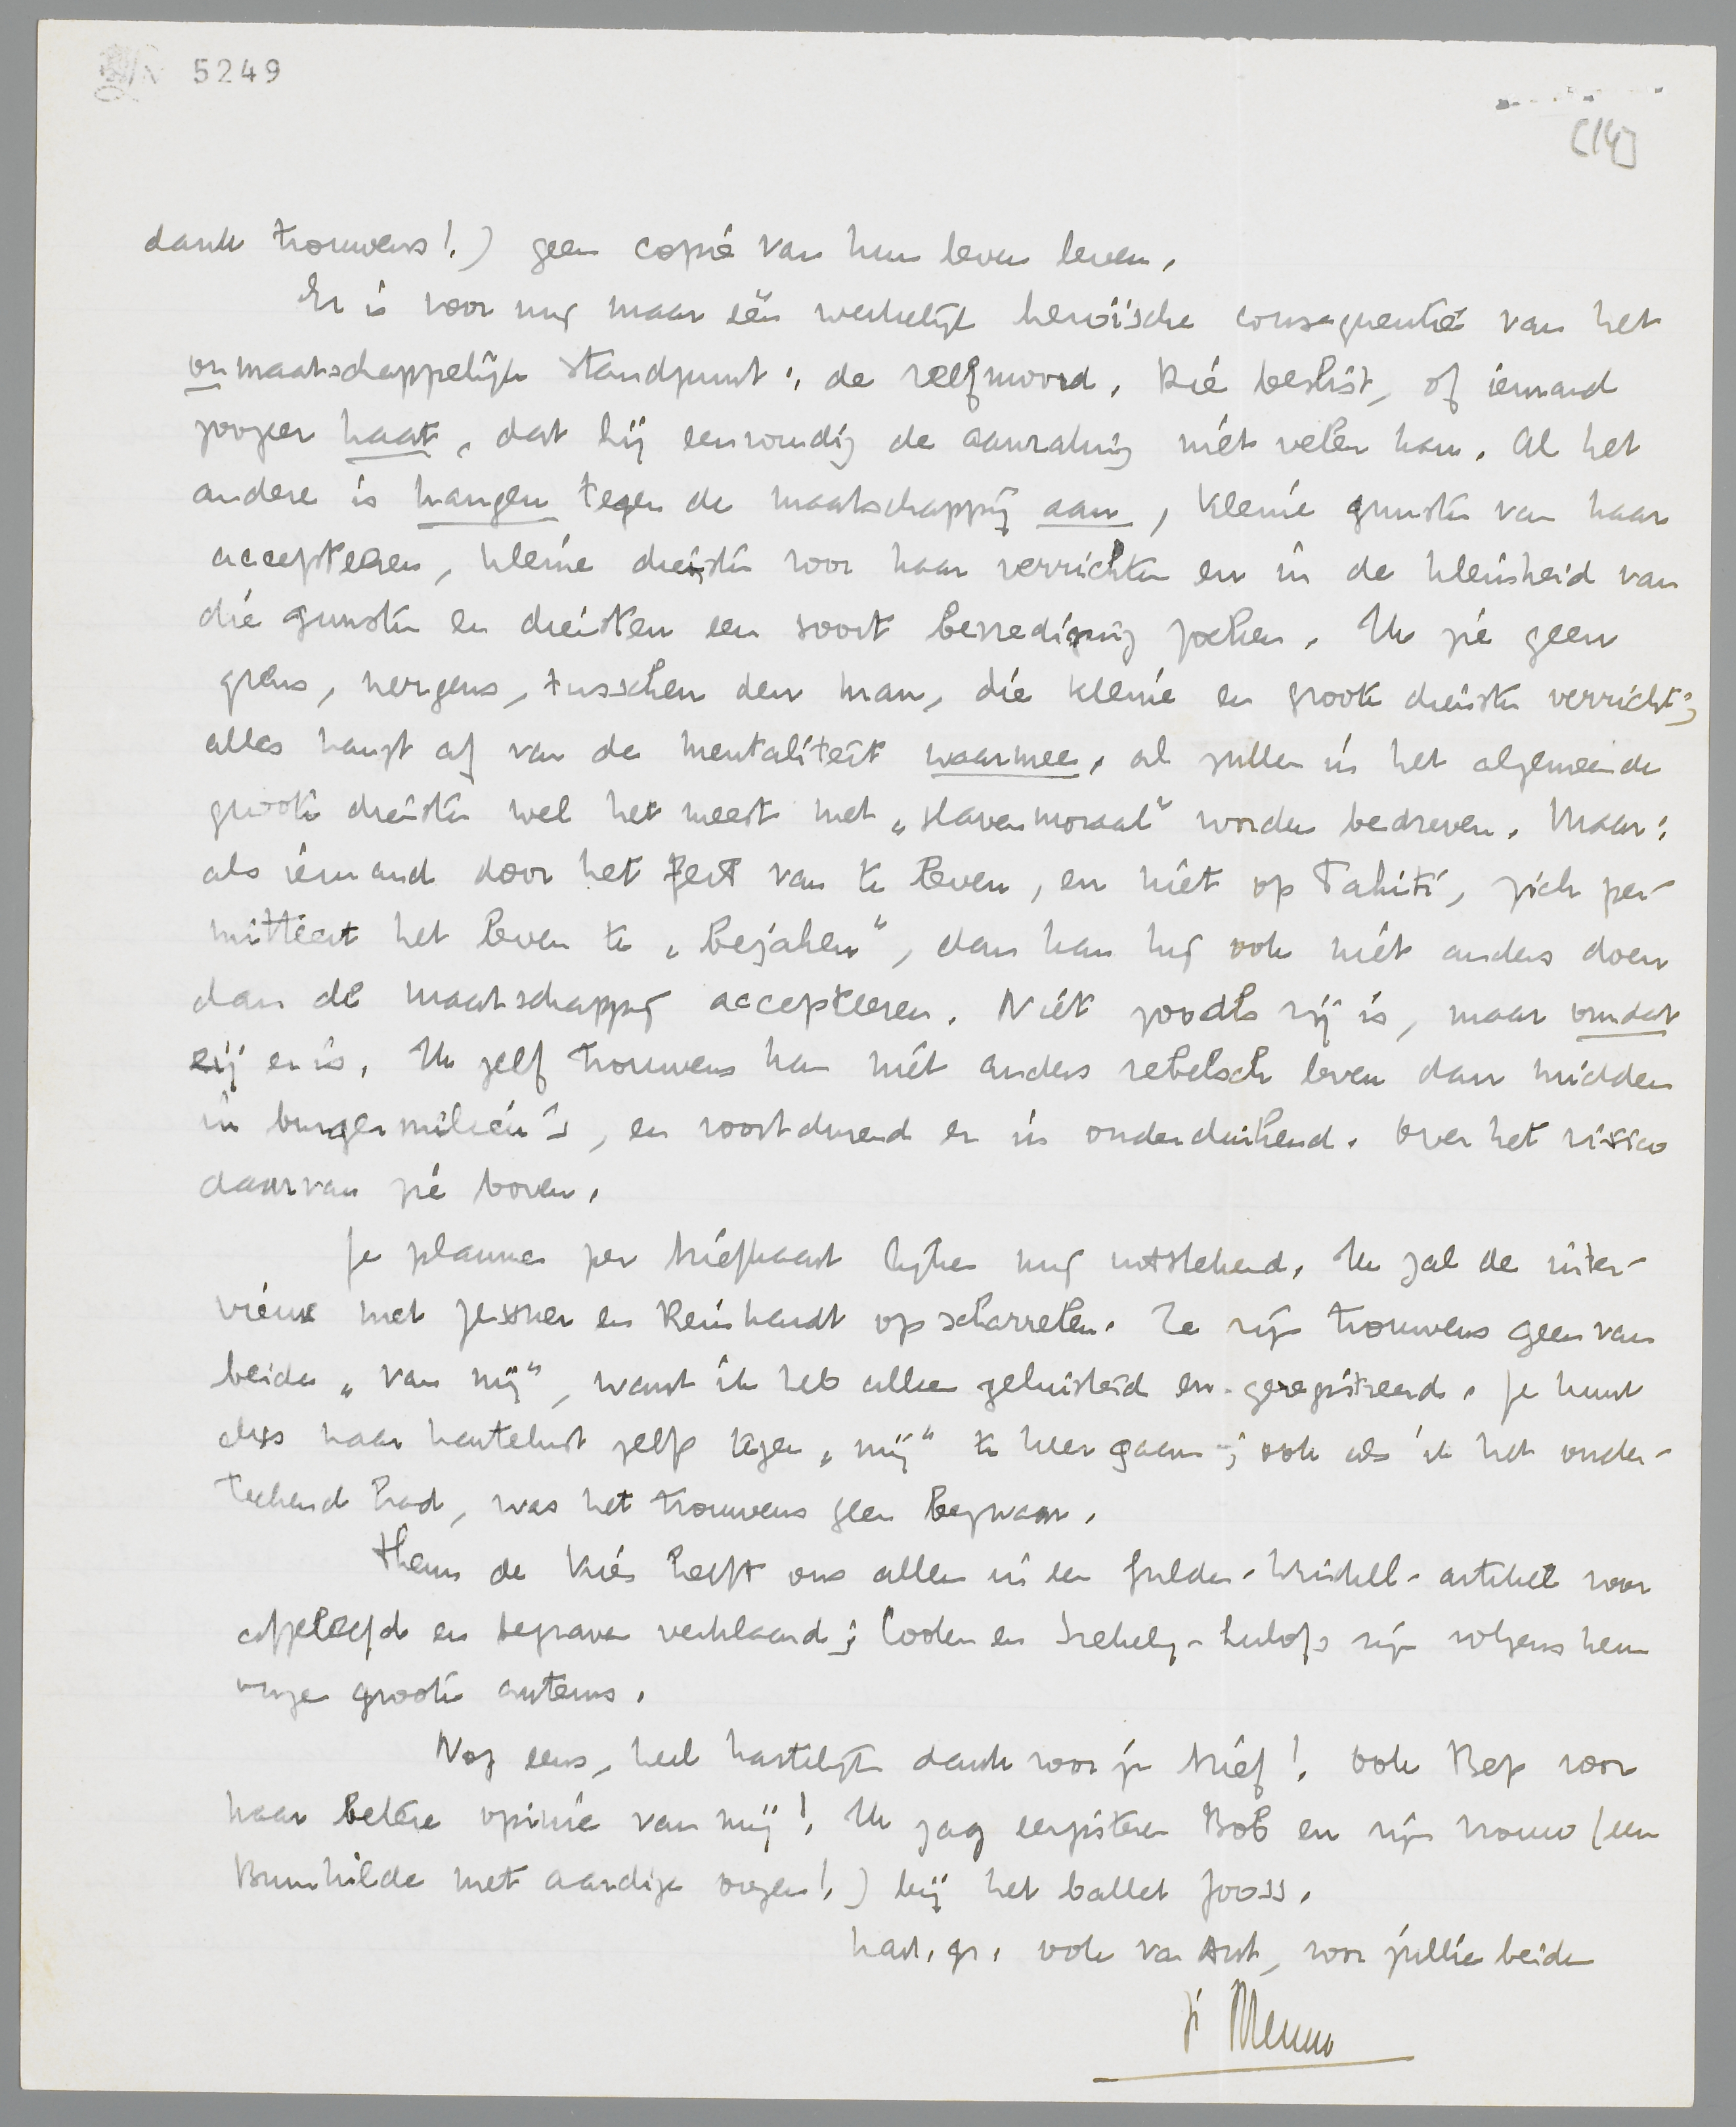 5249
[14]
dank trouwens!) geen copie van hun leven leven.
Er is voor mij maar één werkelijk heroïsche consequentie van het
onmaatschappelijke standpunt: de zelfmoord. Die beslist, of iemand
zoozeer haat, dat hij eenvoudig de aanraking niet velen kan. Al het
andere is hangen tegen de maatschappij aan, kleine gunsten van haar
accepteeren, kleine diensten voor haar verrichten en in de kleinheid van
die gunsten en diensten een soort bevrediging zoeken. Ik zie geen
grens, nergens, tusschen den man, die kleine en groote diensten verricht;
alles hangt af van de mentaliteit waarmee, al zullen in het algemeen de
groote diensten wel het meest met „slavenmoraal" worden bedreven. Maar:
als iemand door het feit van te leven, en niet op Tahiti, zich per-
mitteert het leven te „bejahen", dan kan hij ook niet anders doen
dan de maatschappij accepteeren. Niet zooals zij is, maar omdat
zij er is. Ik zelf trouwens kan niet anders rebelsch leven dan midden
in burgermilieu's, en voortdurend er in onderduikend. Over het risico
daarvan zie boven.
Je plannen per briefkaart lijken mij uitstekend. Ik zal de inter-
views met Jessner en Reinhardt opscharrelen. Ze zijn trouwens geen van
beide „van mij", want ik heb alleen geluisterd en geregistreerd. Je kunt
dus naar hartelust zelf tegen „mij" te keer gaan; ook als ik het onder-
teekend had, was het trouwens geen bezwaar.
Theun de Vries heeft ons allen in een Gulden-Winckel-artikel voor
afgeleefd en begraven verklaard; Coolen en Szekely-Lulofs zijn volgens hem
onze groote auteurs.
Nog eens, heel hartelijk dank voor je brief! Ook Bep voor
haar betere opinie van mij! Ik zag eergisteren Bob en zijn vrouw (een
Brunhilde met aardige oogen!) bij het ballet Jooss.
hart. gr. ook van Ant, voor jullie beiden
je Menno